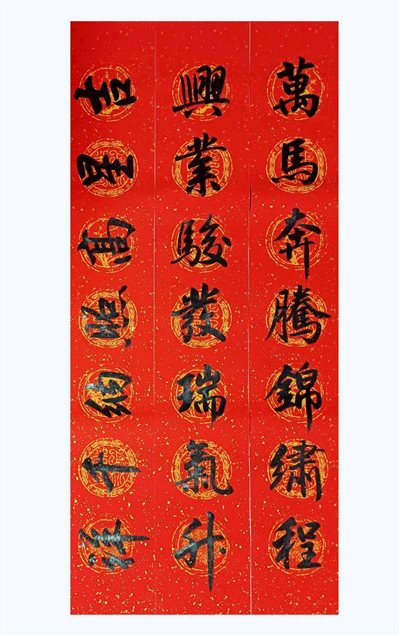 萬馬奔騰錦繡程
興業駿發瑞氣升
吉星高照納千祥